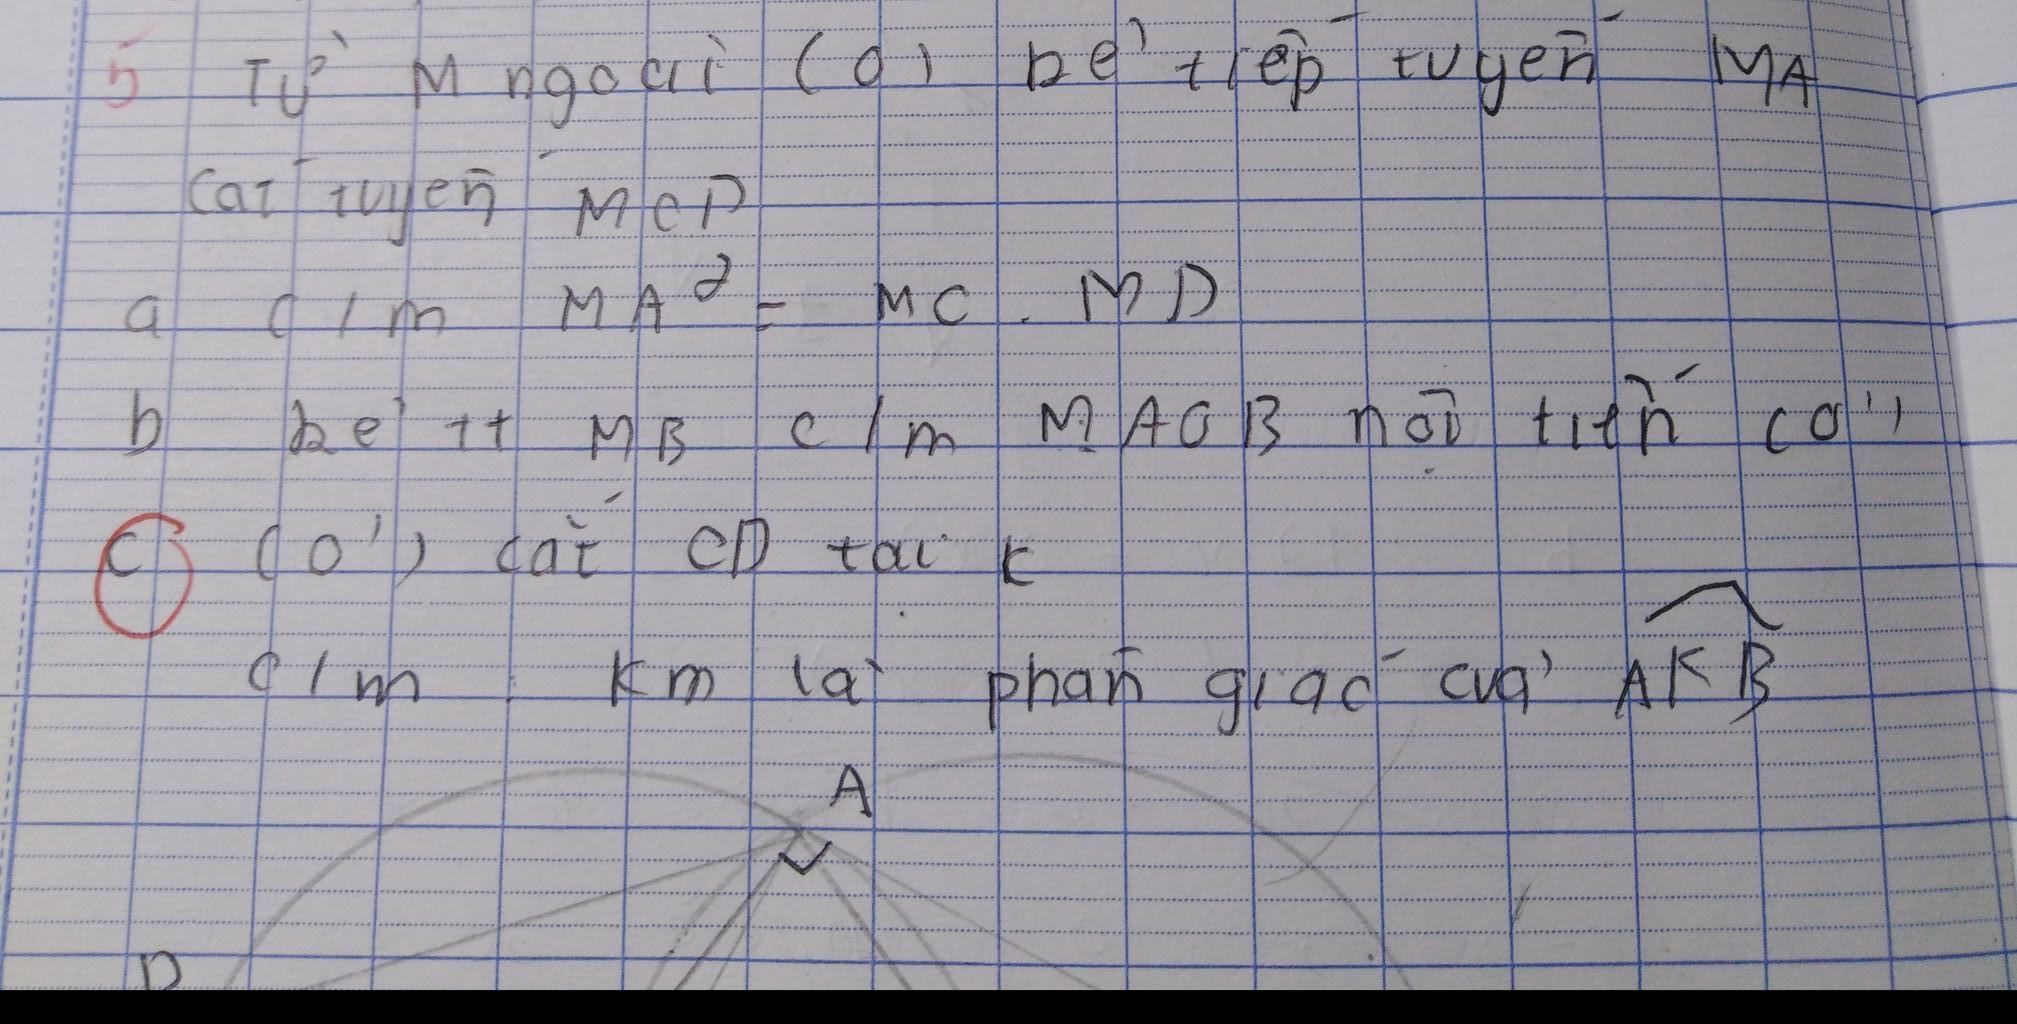 5 Từ M ngoài (O) kẻ tiếp tuyến MA
Cát tuyến MCD
a c/m MA² = MC . MD
b kẻ tt MB c/m MAOB nội tiến (O')
C (O') cắt CD tại K
c/m : KM là phân giác của AKB
A
D